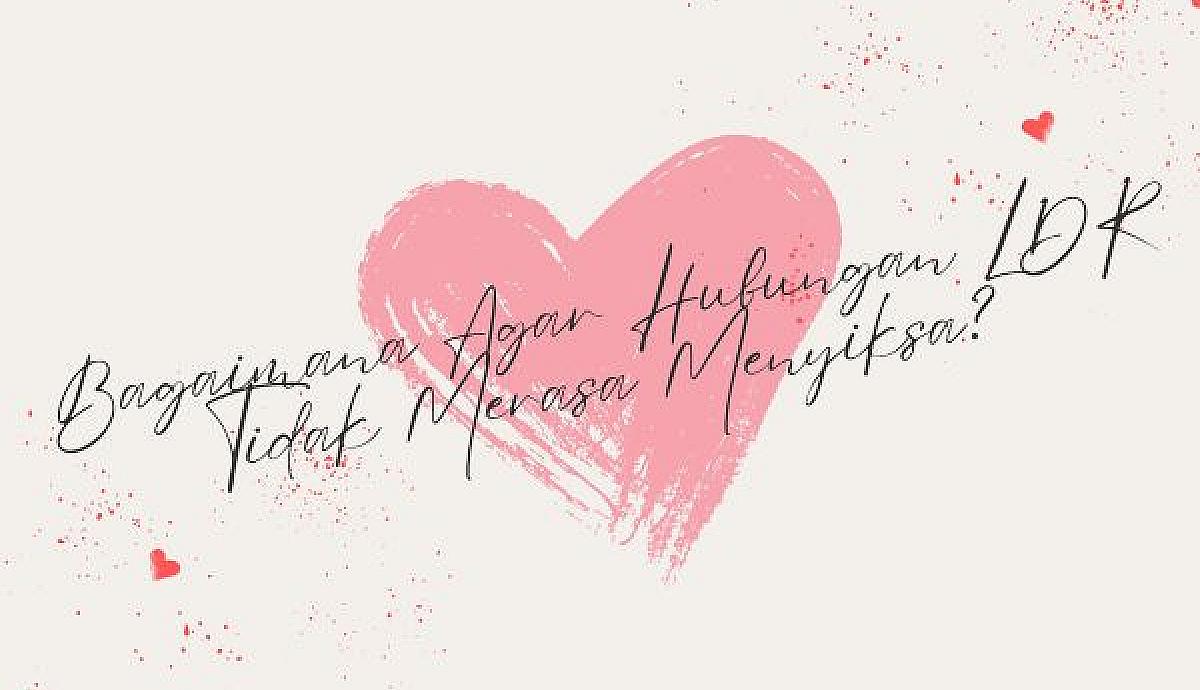 Bagaimana Agar Hubungan LDR
Tidak Merasa Menyiksa?